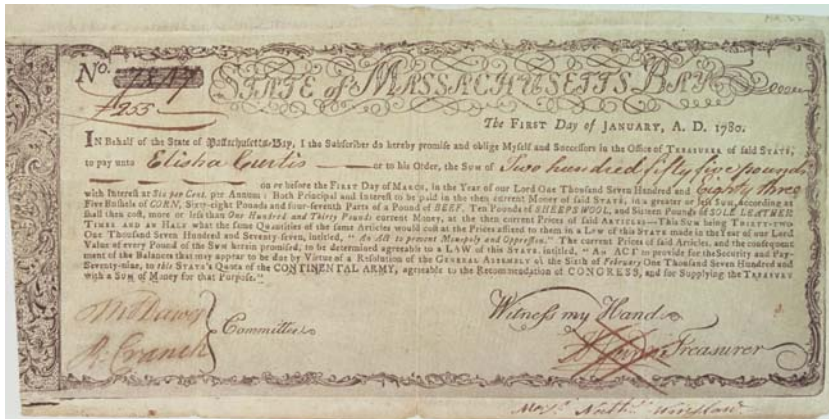 No.
£255
STATE of MASSACHUSETTS BAY
The FIRST Day of JANUARY, A. D. 1780.
IN Behalf of the State of Massachusetts-Bay, I the Subscriber do hereby promise and oblige Myself and Successors in the Office of TREASURER of said STATE,
to pay unto Elisha Curtis or to his Order, the SUM of Two hundred fifty five pounds
on or before the FIRST Day of MARCH, in the Year of our Lord One Thousand Seven Hundred and Eighty three
with Interest at Six per Cent. per Annum : Both Principal and Interest to be paid in the then current Money of said STATE, in a greater or less SUM, according as
Five Bushels of CORN, Sixty-eight Pounds and four-seventh Parts of a Pound of BEEF, Ten Pounds of SHEEPS WOOL, and Sixteen Pounds of SOLE LEATHER
shall then cost, more or less than One Hundred and Thirty Pounds current Money, at the then current Prices of said ARTICLES—This SUM being THIRTY-TWO
TIMES AND AN HALF what the same Quantities of the same Articles would cost at the Prices affixed to them in a LAW of this STATE made in the Year of our Lord
One Thousand Seven Hundred and Seventy-seven, intitled, " An Act to prevent Monopoly and Oppression." The current Prices of said Articles, and the consequent
Value of every Pound of the SUM herein promised, to be determined agreeable to a LAW of this STATE, intitled, " An ACT to provide for the Security and Pay-
ment of the Balances that may appear to be due by Virtue of a Resolution of the GENERAL ASSEMBLY of the Sixth of February One Thousand Seven Hundred and
Seventy-nine, to this STATE's Quota of the CONTINENTAL ARMY, agreeable to the Recommendation of CONGRESS, and for Supplying the TREASURY
with a SUM of Money for that Purpose."
Witness my Hand
Committee
R. Cranch
Treasurer
Winslow